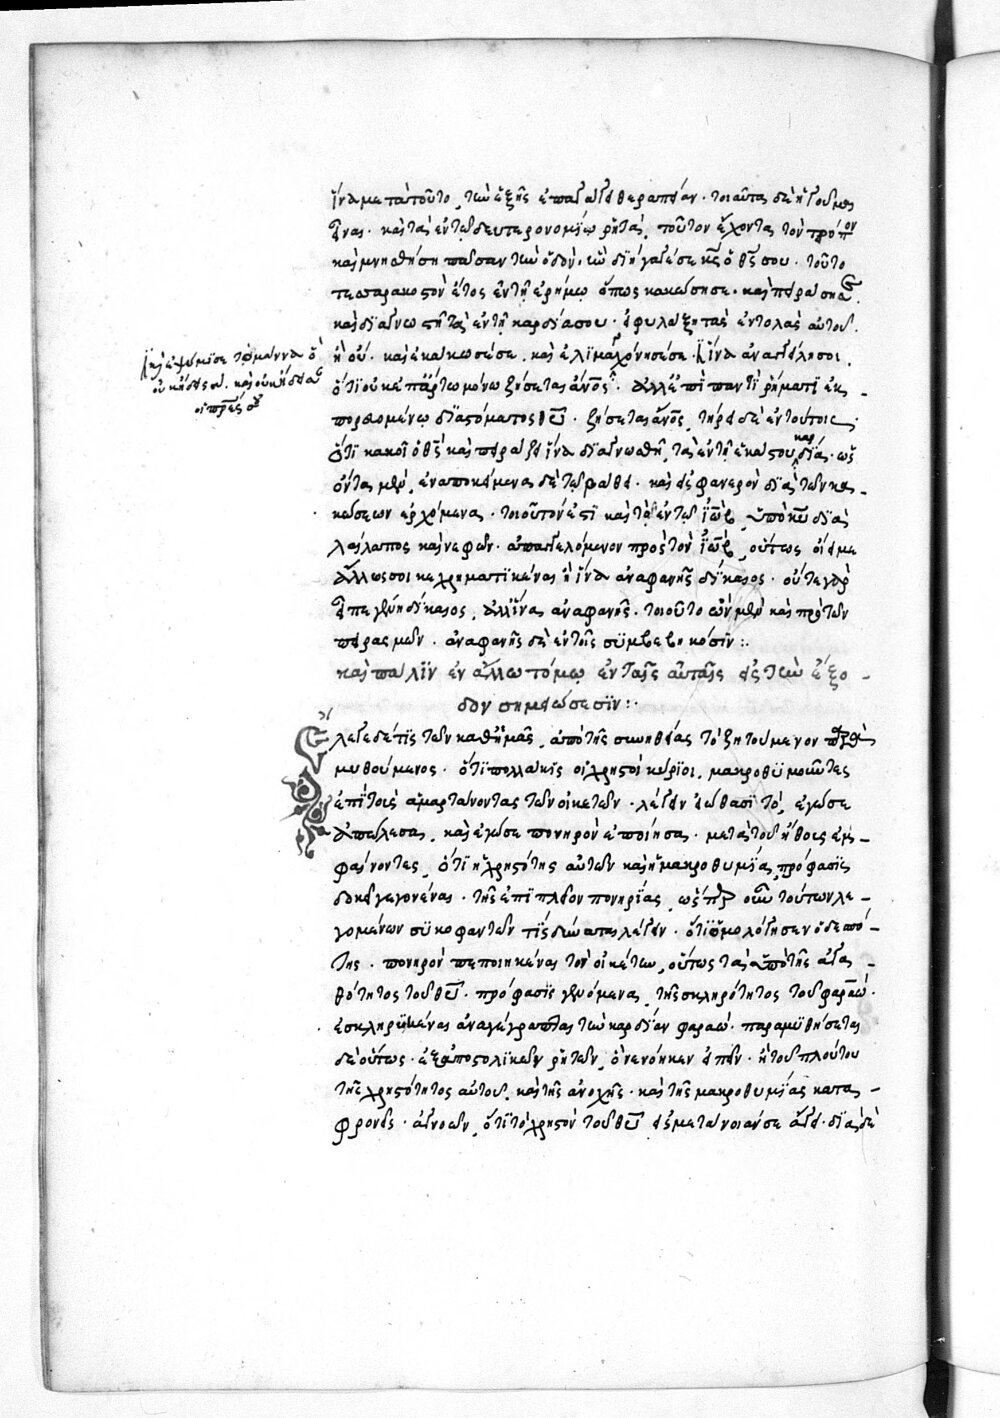 ἵνα μετὰ τοῦτο, τὴν ἑξῆς ἐπαγάγῃ θεραπείαν. τοιαῦτα δὲ ἡγοῦμαι
εἶναι. καὶ τὰ ἐν τῷ δευτερονομίῳ ῥητὰ, τοῦτον ἔχοντα τὸν τρόπον
καὶ μνησθήσῃ πᾶσαν τὴν ὁδὸν, ἣν διήγαγέ σε κς̅ ὁ θς̅ σου. τοῦτο
τεσσαρακοστὸν ἔτος ἐν τῇ ἐρήμῳ ὅπως κακώσῃ σε. καὶ πειράσῃ σε.
καὶ διαγνωσθῇ τὰ ἐν τῇ καρδίᾳ σου. εἰ φυλάξῃ τὰς ἐντολὰς αὐτοῦ.
ἢ οὔ. καὶ ἐκάκωσέ σε. καὶ ἐλιμαγχόνησέ σε. ἵνα ἀναγγείλῃ σοι.
καὶ ἐψώμισέ σε τὸ μάννα ὃ
οὐκ ᾔδεις σύ. καὶ οὐκ ᾔδεισαν
οἱ πρε̅ς σου
ὅτι οὐκ ἐπ' ἄρτῳ μόνῳ ζήσεται ἄνο̅ς. ἀλλ' ἐπὶ παντὶ ῥήματι ἐκ-
πορευομένῳ διὰ στόματος θυ̅. ζήσεται ἄνο̅ς, τήρει δὲ ἐν τούτοις
ὅτι κακοῖ ὁ θς̅ καὶ πειράζει ἵνα διαγνωσθῇ, τὰ ἐν τῇ ἑκάστου καρδίᾳ. ὡς
ὄντα μὲν, ἐναποκείμενα δὲ τῷ βάθει. καὶ εἰς φανερὸν διὰ τῶν κα-
κώσεων ἐρχόμενα. τοιοῦτόν ἐστι καὶ τὸ ἐν τῷ ἰὼβ, ὑπὸ κυ̅ διὰ
λαίλαπος καὶ νεφῶν. ἀπαγγελόμενον πρὸς τὸν ἰὼβ, οὕτως οἴει με
ἄλλως σοι κεχρηματικέναι ἢ ἵνα ἀναφανῇς δίκαιος. οὔτε γὰρ
εἶπε γένῃ δίκαιος, ἀλλ' ἵνα ἀναφανῇς. τοιοῦτο ὢν μὲν καὶ πρὸ τῶν
πειρασμῶν. ἀναφανῇς δὲ ἐν τοῖς συμβεβηκόσιν:.
καὶ πάλιν ἐν ἄλλῳ τόμῳ ἐν ταῖς αὐταῖς εἰς τὴν ἔξο-
δον σημειώσεσιν:.
Ἔλεγε δέ τις τῶν καθ' ἡμᾶς, ἀπὸ τῆς συνηθείας τὸ ζητούμενον παρα-
μυθούμενος. ὅτι πολλάκις οἱ χρηστοὶ κύριοι. μακροθυμοῦντες
ἐπὶ τοῖς ἁμαρτάνοντας τῶν οἰκετῶν. λέγειν εἰώθασι τὸ, ἐγώ σε
ἀπώλεσα. καὶ ἐγώ σε πονηρὸν ἐποίησα. μετὰ τοῦ ἤθους ἐμ-
φαίνοντες, ὅτι ἡ χρηστότης αὐτῶν καὶ ἡ μακροθυμία, πρόφασις
δοκεῖ γεγονέναι. τῆς ἐπὶ πλεῖον πονηρίας, ὥσπερ οὖν τούτων λε-
γομένων συκοφαντῶν τὶς δύναται λέγειν. ὅτι ὡμολόγησεν ὁ δεσπό-
της. πονηρὸν πεποιηκέναι τὸν οἰκέτην, οὕτως τὰ ἀπὸ τῆς ἀγα-
θότητος τοῦ θυ̅. πρόφασις γενόμενα, τῆς σκληρότητος τοῦ φαραώ.
ἐσκληρυκέναι ἀναγέγραπται τὴν καρδίαν φαραώ. παραμυθήσεται
δὲ οὕτως. ἐξ ἀποστολικῶν ῥητῶν, ὃ νενόηκεν εἰπεῖν. ἢ τοῦ πλούτου
τῆς χρηστότητος αὐτοῦ, καὶ τῆς ἀνοχῆς. καὶ τῆς μακροθυμίας κατα-
φρονεῖς. ἀγνοῶν, ὅτι τὸ χρηστὸν τοῦ θυ̅ εἰς μετάνοιάν σε ἄγει. διὰ δὲ